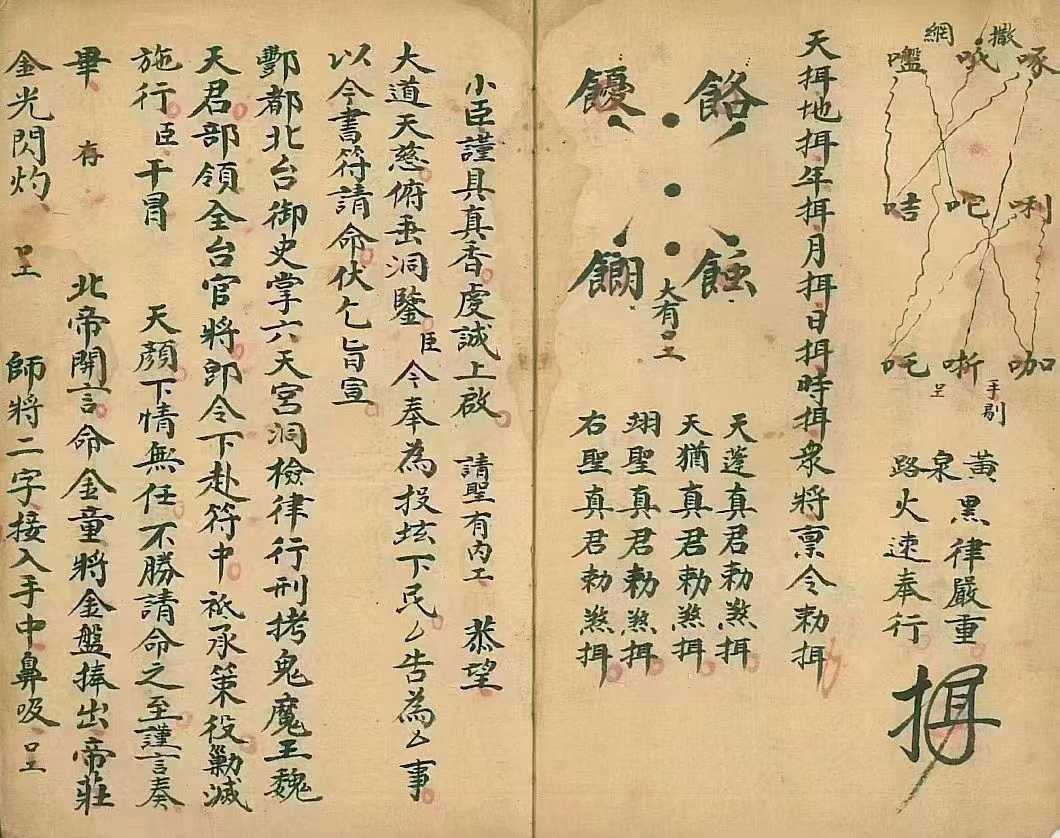 撒網
啄 吒 嚂
唎 吧 咭
咖 哳 吒
手剔
黃泉路
黑律嚴重
火速奉行
天挕地挕年挕月挕日挕時挕眾將稟令勅挕
大有
天蓬真君勅煞挕
天猶真君勅煞挕
翊聖真君勅煞挕
右聖真君勅煞挕
小臣謹具真香虔誠上啟 請聖有內工 恭望
大道天慈俯垂洞鑒臣今奉為投坛下民厶告為厶事
以今書符請命伏乞旨宣
酆都北台御史掌六天宮洞檢律行刑拷鬼魔王魏
天君部領全台官將即令下赴符中祇承策役勦滅
施行臣干冒 天顏下情無任不勝請命之至謹言奏
畢 存 北帝開言命金童將金盤捧出帝莊
金光閃灼 師將二字接入手中鼻吸